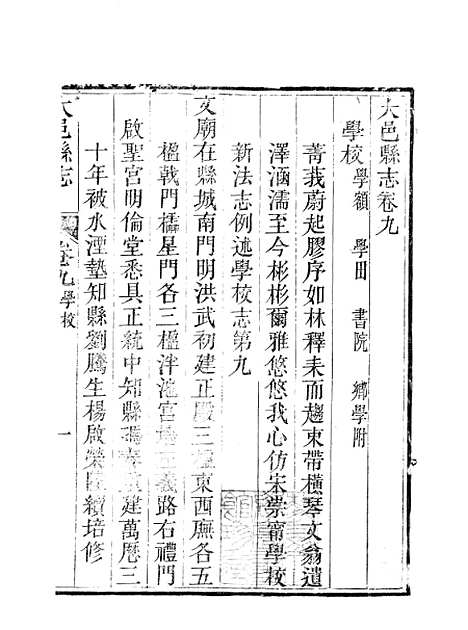 大邑縣志卷九
學校 學額 學田 書院 鄉學附
菁莪蔚起膠序如林釋耒而趨束帶橫琴文翁遺
澤涵濡至今彬彬爾雅悠悠我心仿宋崇甯學校
新法志例述學校志第九
文廟在縣城南門明洪武初建正殿三楹東西廡各五
楹戟門櫺星門各三楹泮池宮牆義路右禮門
啟聖宮明倫堂悉具正統中知縣建萬歷三
十年被水湮墊知縣劉騰生楊啟榮續培修
大邑縣志 卷九學校 一